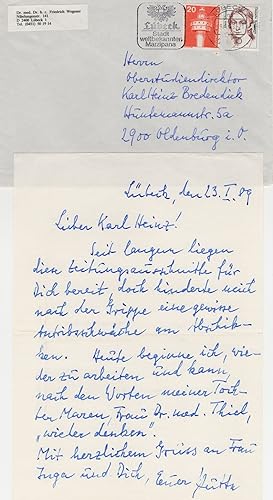 Dr. med. Dr. h. c. Friedrich Wegener
Nibelungenstr. 141
D 2400 Lübeck 1
Tel. (0451) 50 19 14
Lübeck
Stadt
weltbekannten
Marzipans
20
Herrn
Oberstudiendirektor
Karl Heinz Bredendiek
2900 Oldenburg i. O.
Lübeck, den 23. I. 89
Lieber Karl Heinz!
Seit langem liegen
die Zeitungsausschnitte für
Dich bereit, doch hinderte mich
nach der Grippe eine gewisse
Antriebsschwäche am Abschik-
ken. Heute beginne ich, wie-
der zu arbeiten und kann,
nach den Worten meiner Toch-
ter Maren, Frau Dr. med. Thiel,
„wieder denken".
Mit herzlichem Gruss an Frau
Inga und Dich, Euer